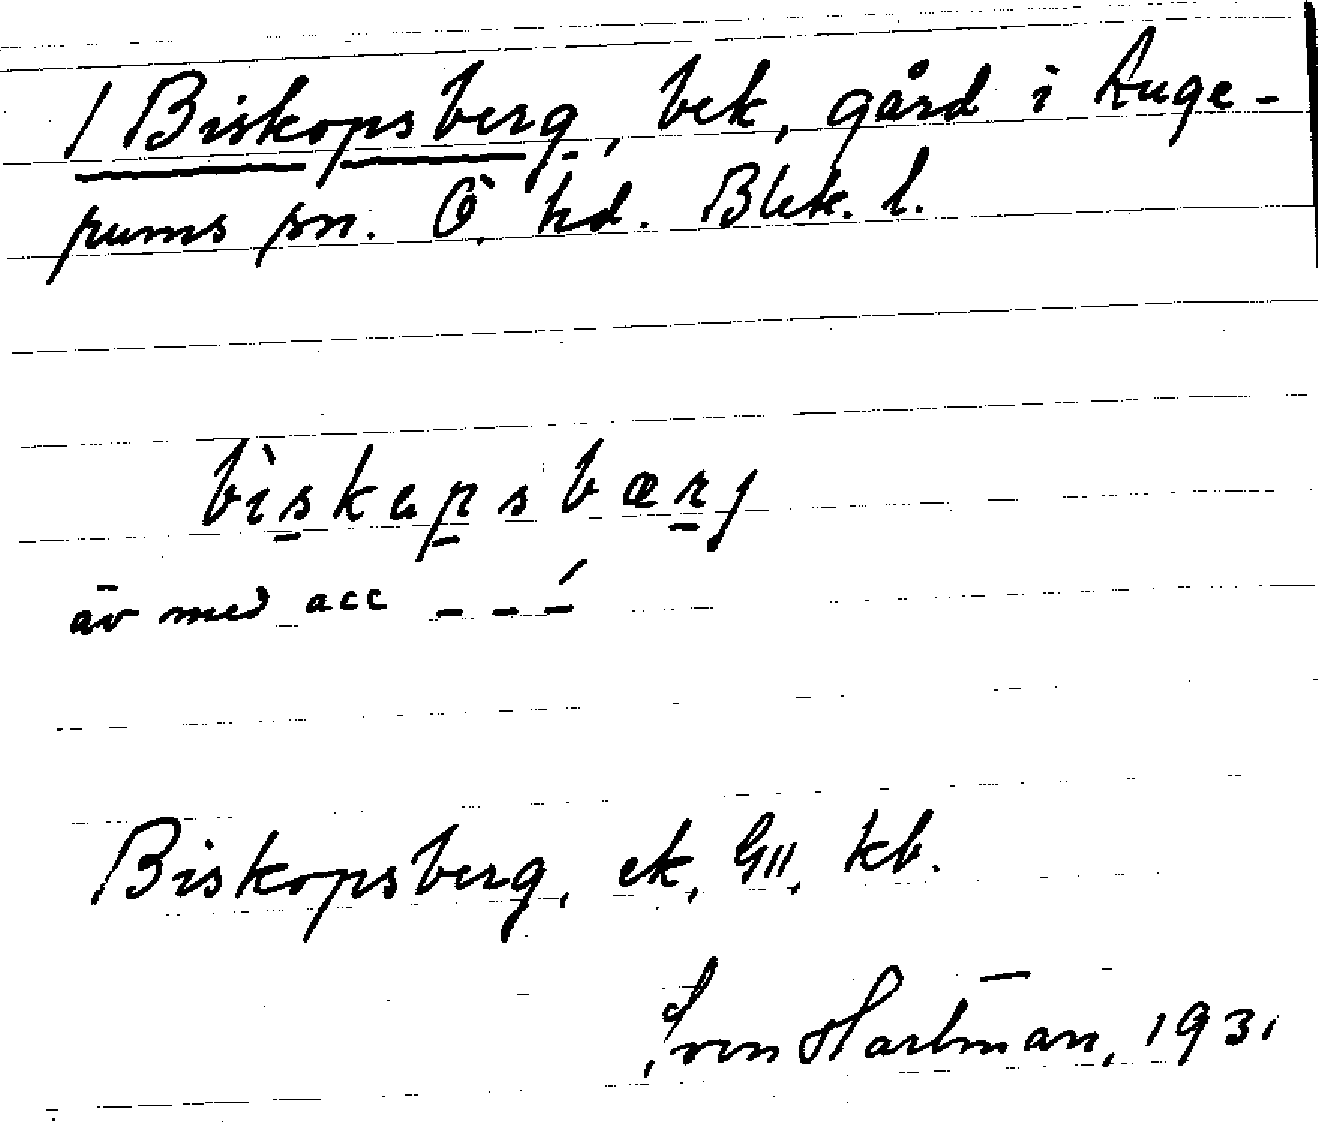 / Biskopsberg, bek, gård i Auge-
pums sn. Ö. hd. Blek. l.
bìskapsbærj
äv med acc – – –́
Biskopsberg, ek, GII, kb.
Sven Hartman, 1931